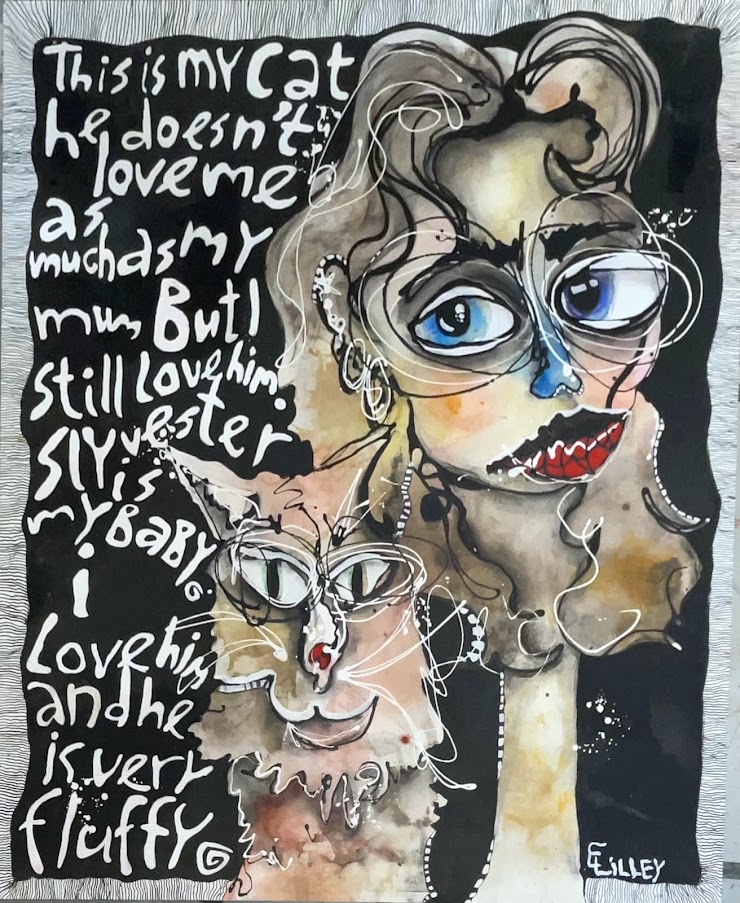 This is my cat
he doesn't
love me
as
much as my
mum But I
still Love him.
Sylvester
is
my BABY.
i
Love him
and he
is very
fluffy.
E LILLEY